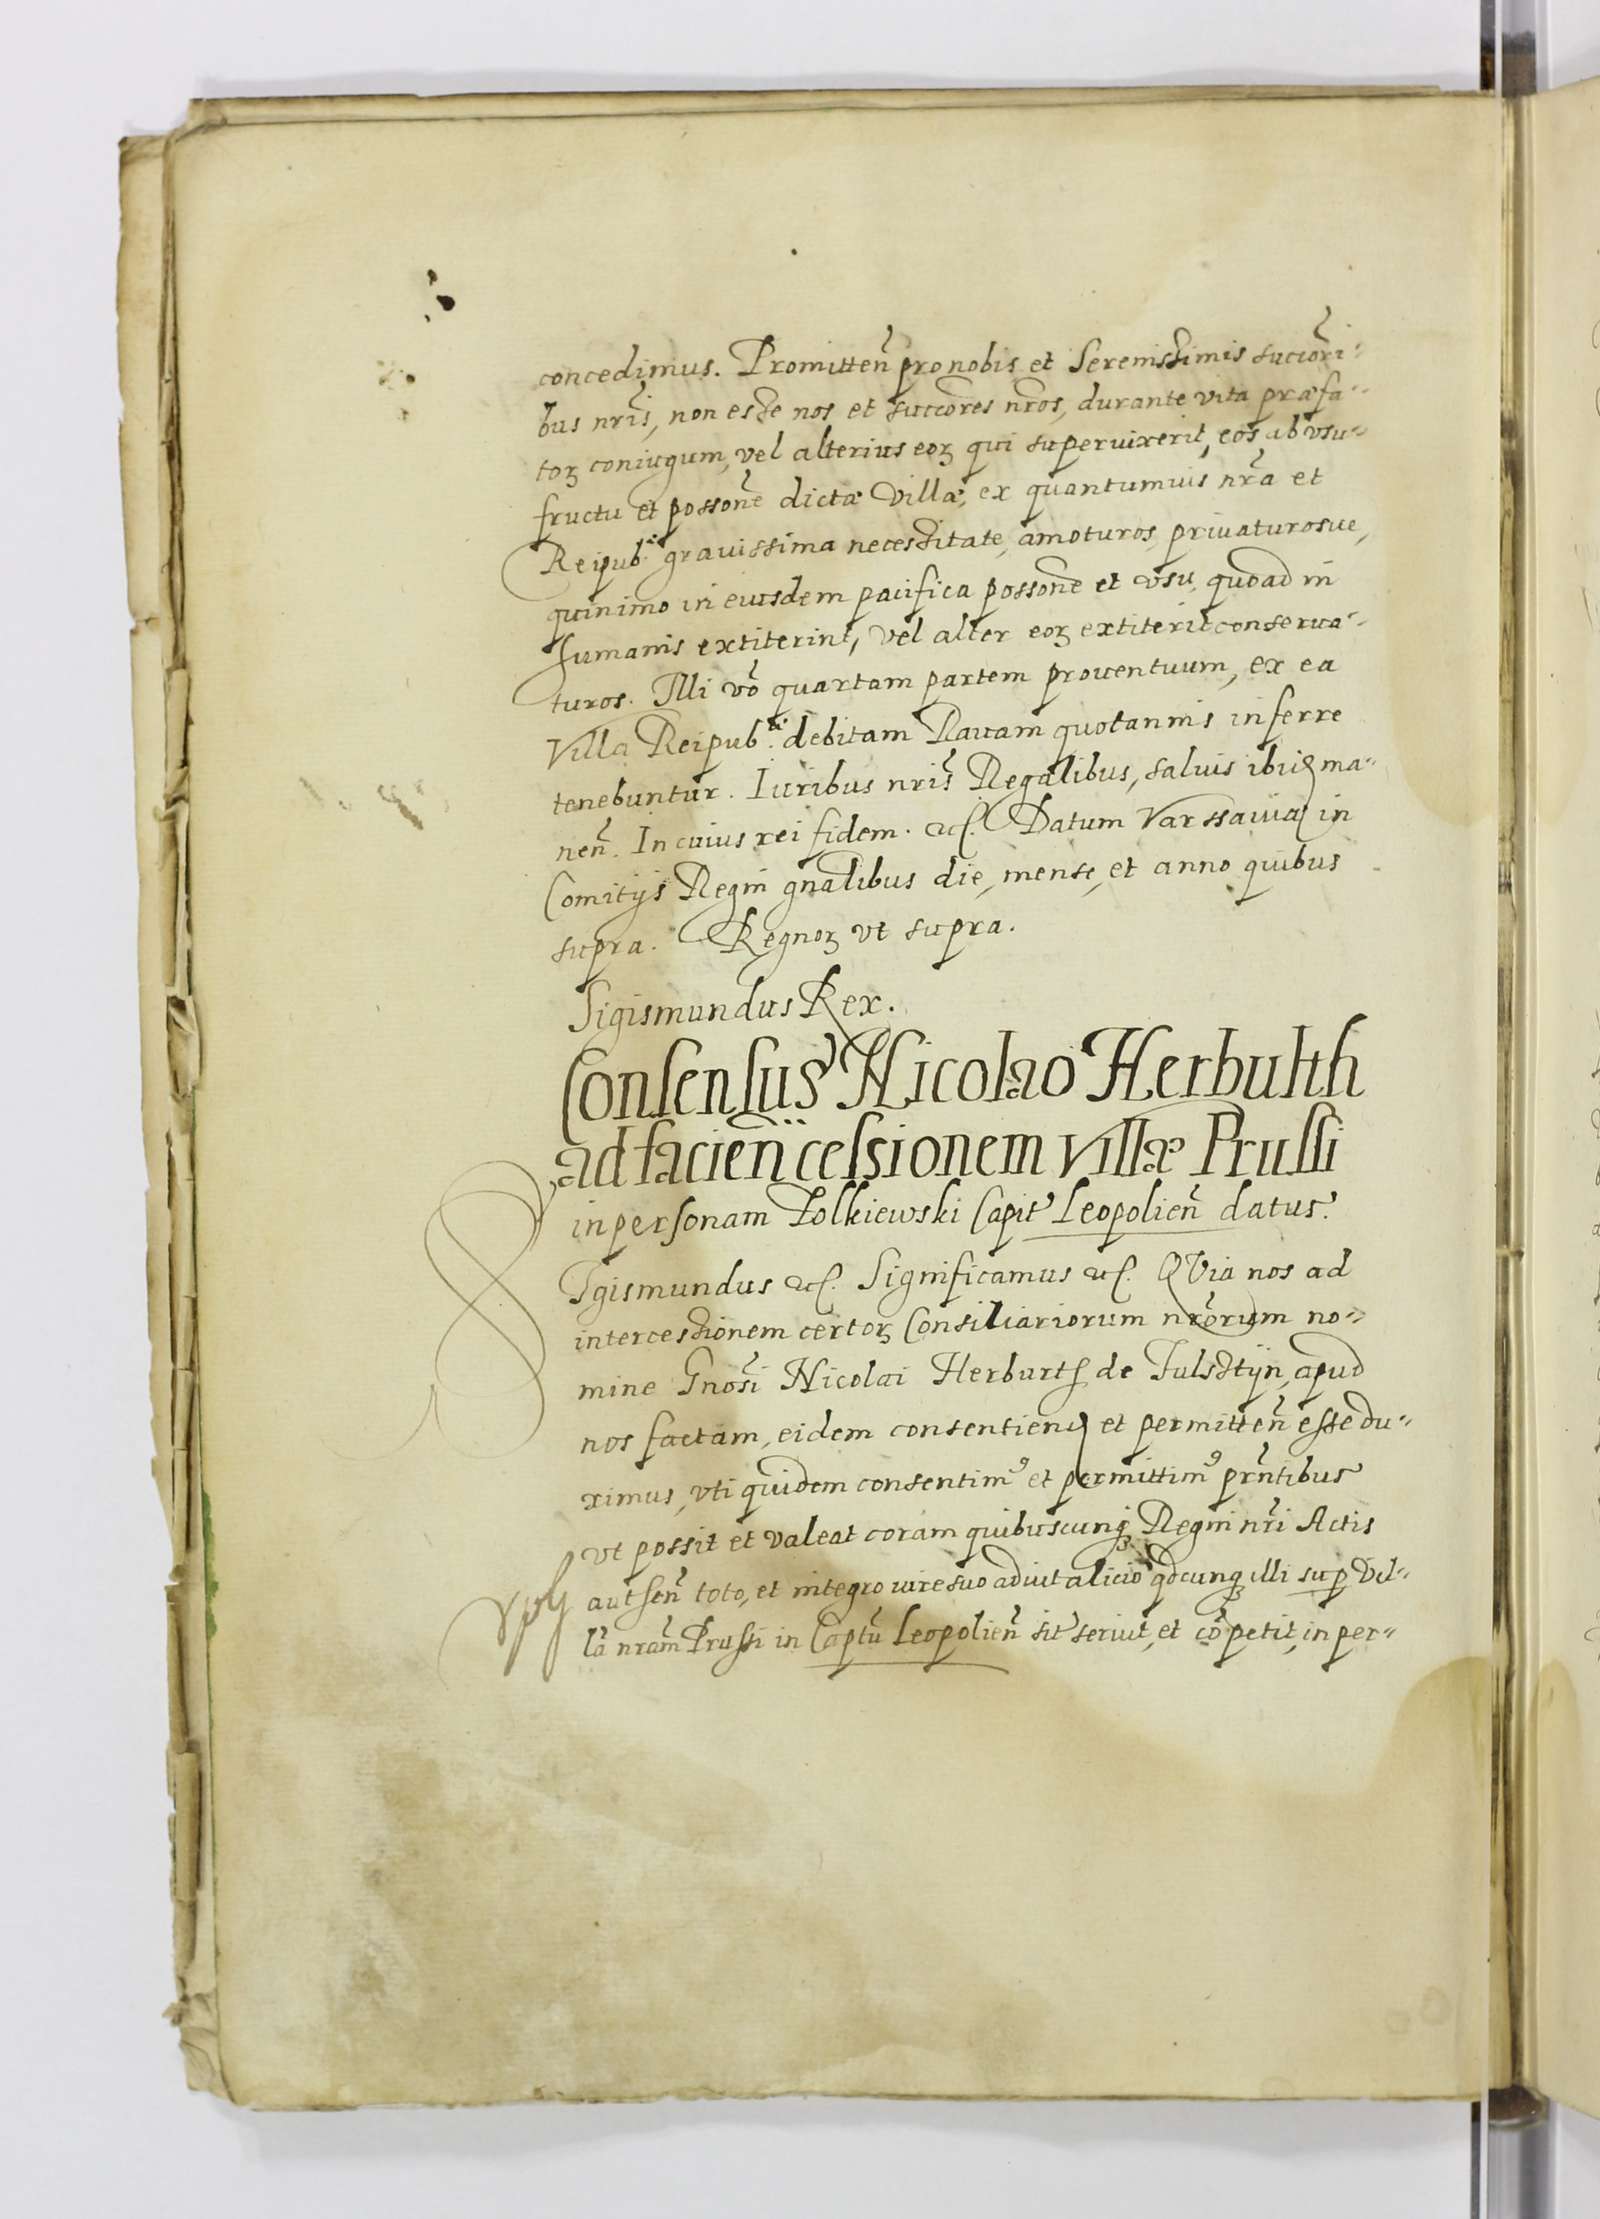 concedimus. Promitteñ pro nobis et Serenissimis succõri-
bus nr̃is, non esse nos et succõres nr̃os, durante vita præfa-
toꝝ coniugum, vel alterius eoꝝ qui superuixerit, eos ab vsu-
fructu et possoñe dictæ Villæ, ex quantumuis nr̃a et
Reipub. grauissima necessitate, amoturos, priuaturosue,
quinimo in eiusdem pacifica possoñe et vsu, quoad in
humanis extiterint, vel alter eoꝝ extiterit conserua-
turos. Illi võ quartam partem prouentuum, ex ea
Villa Reipub. debitam Rauam quotannis inferre
tenebuntur. Iuribus nr̃is Regalibus, saluis ibidꝫ ma-
neñ. In cuius rei fidem. etc. Datum Varssauiæ in
Comitijs Regni gñalibus die, mense, et anno quibus
supra. Regnoꝝ vt supra.
Sigismundus Rex.
Consensus Nicolao Herbulth
ad facień cessionem villæ Prussi
in personam Zolkiewski Capit Leopolień datus.
Sigismundus etc. Significamus etc. QVia nos ad
intercessionem certoꝝ Consiliariorum nr̃orum no-
mine Gnõsi Nicolai Herburth de Fulsstijn, apud
nos factam, eidem consentiendꝫ et permitteñ esse du-
ximus, vti quidem consentimꝰ et permittimꝰ pr̃ntibus
vt possit et valeat coram quibuscunqꝫ Regni nr̃i Actis
autseñ toto, et integro iure suo aduitalicio qdcunqꝫ illi sup Vil-
lã nrãm Prussi in Captũ Leopolień sit seruit, et cõpetit, in per-